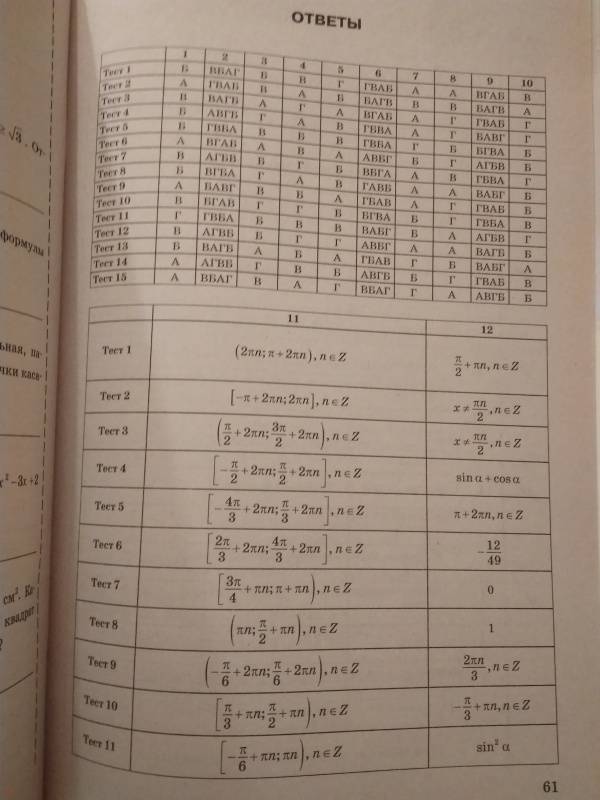 ОТВЕТЫ
1 2 3 4 5 6 7 8 9 10
Тест 1 Б ВБАГ Б В Г ГВАБ А А ВГАБ В
Тест 2 А ГВАБ В А Б БАГВ В В БАГВ А
Тест 3 В ВАГБ А Г Б ВГАБ А Г ГВАБ Г
Тест 4 Б АВБГ Г А Г ГБВА Г Г БАВГ Г
Тест 5 Б ГБВА В В ГВБА Г Б БГВА Б
Тест 6 А ВГАБ А Б АВБГ Б Г АГБВ В
Тест 7 В АГБВ Б Г А ВБГА А В ГБВА Г
Тест 8 Б ВГБА Г А Б ГАВБ А Б ВАБГ Г
Тест 9 А БАВГ В Б В ГБАВ Г Г ГВАБ Б
Тест 10 В БГАВ Б Г А БГВА Б Г ГВБА В
Тест 11 Г ГВБА Б В Б ВАБГ Б А АГБВ Г
Тест 12 В АГВБ Б Г В АВБГ А А ВАГБ Б
Тест 13 Б ВАГБ А Б Г ГБАВ Г Б ВАБГ А
Тест 14 А АГВБ Г В Б АВГБ Б Г ГВАБ В
Тест 15 А ВБАГ В А Г ВБАГ Г А АВГБ Б
11 12
Тест 1 (2πn; π+2πn), n∈Z π/2+πn, n∈Z
Тест 2 [−π+2πn; 2πn], n∈Z x≠πn/2, n∈Z
Тест 3 (π/2+2πn; 3π/2+2πn), n∈Z x≠πn/2, n∈Z
Тест 4 [−π/2+2πn; π/2+2πn], n∈Z sinα+cosα
Тест 5 [−4π/3+2πn; π/3+2πn], n∈Z π+2πn, n∈Z
Тест 6 [2π/3+2πn; 4π/3+2πn], n∈Z −12/49
Тест 7 [3π/4+πn; π+πn), n∈Z 0
Тест 8 (πn; π/2+πn), n∈Z 1
Тест 9 (−π/6+2πn; π/6+2πn), n∈Z 2πn/3, n∈Z
Тест 10 [π/3+πn; π/2+πn), n∈Z −π/3+πn, n∈Z
Тест 11 [−π/6+πn; πn), n∈Z sin² α
61
≥ √3 . От-
формулы
льная, па-
чки каса-
x²−3x+2
см². Ка-
квадрат
?